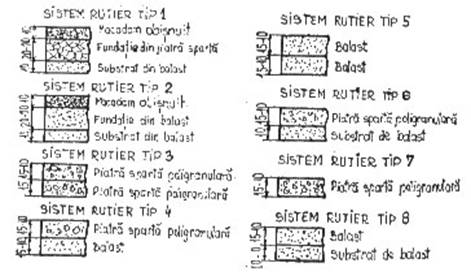 SISTEM RUTIER TIP 1
Macadam obișnuit
Fundație din piatră spartă
Substrat din balast
SISTEM RUTIER TIP 2
Macadam obișnuit
Fundație din balast
Substrat din balast
SISTEM RUTIER TIP 3
Piatră spartă poligranulară
Piatră spartă poligranulară
SISTEM RUTIER TIP 4
Piatră spartă poligranulară
Balast
SISTEM RUTIER TIP 5
Balast
Balast
SISTEM RUTIER TIP 6
Piatră spartă poligranulară
Substrat de balast
SISTEM RUTIER TIP 7
Piatră spartă poligranulară
SISTEM RUTIER TIP 8
Balast
Substrat de balast